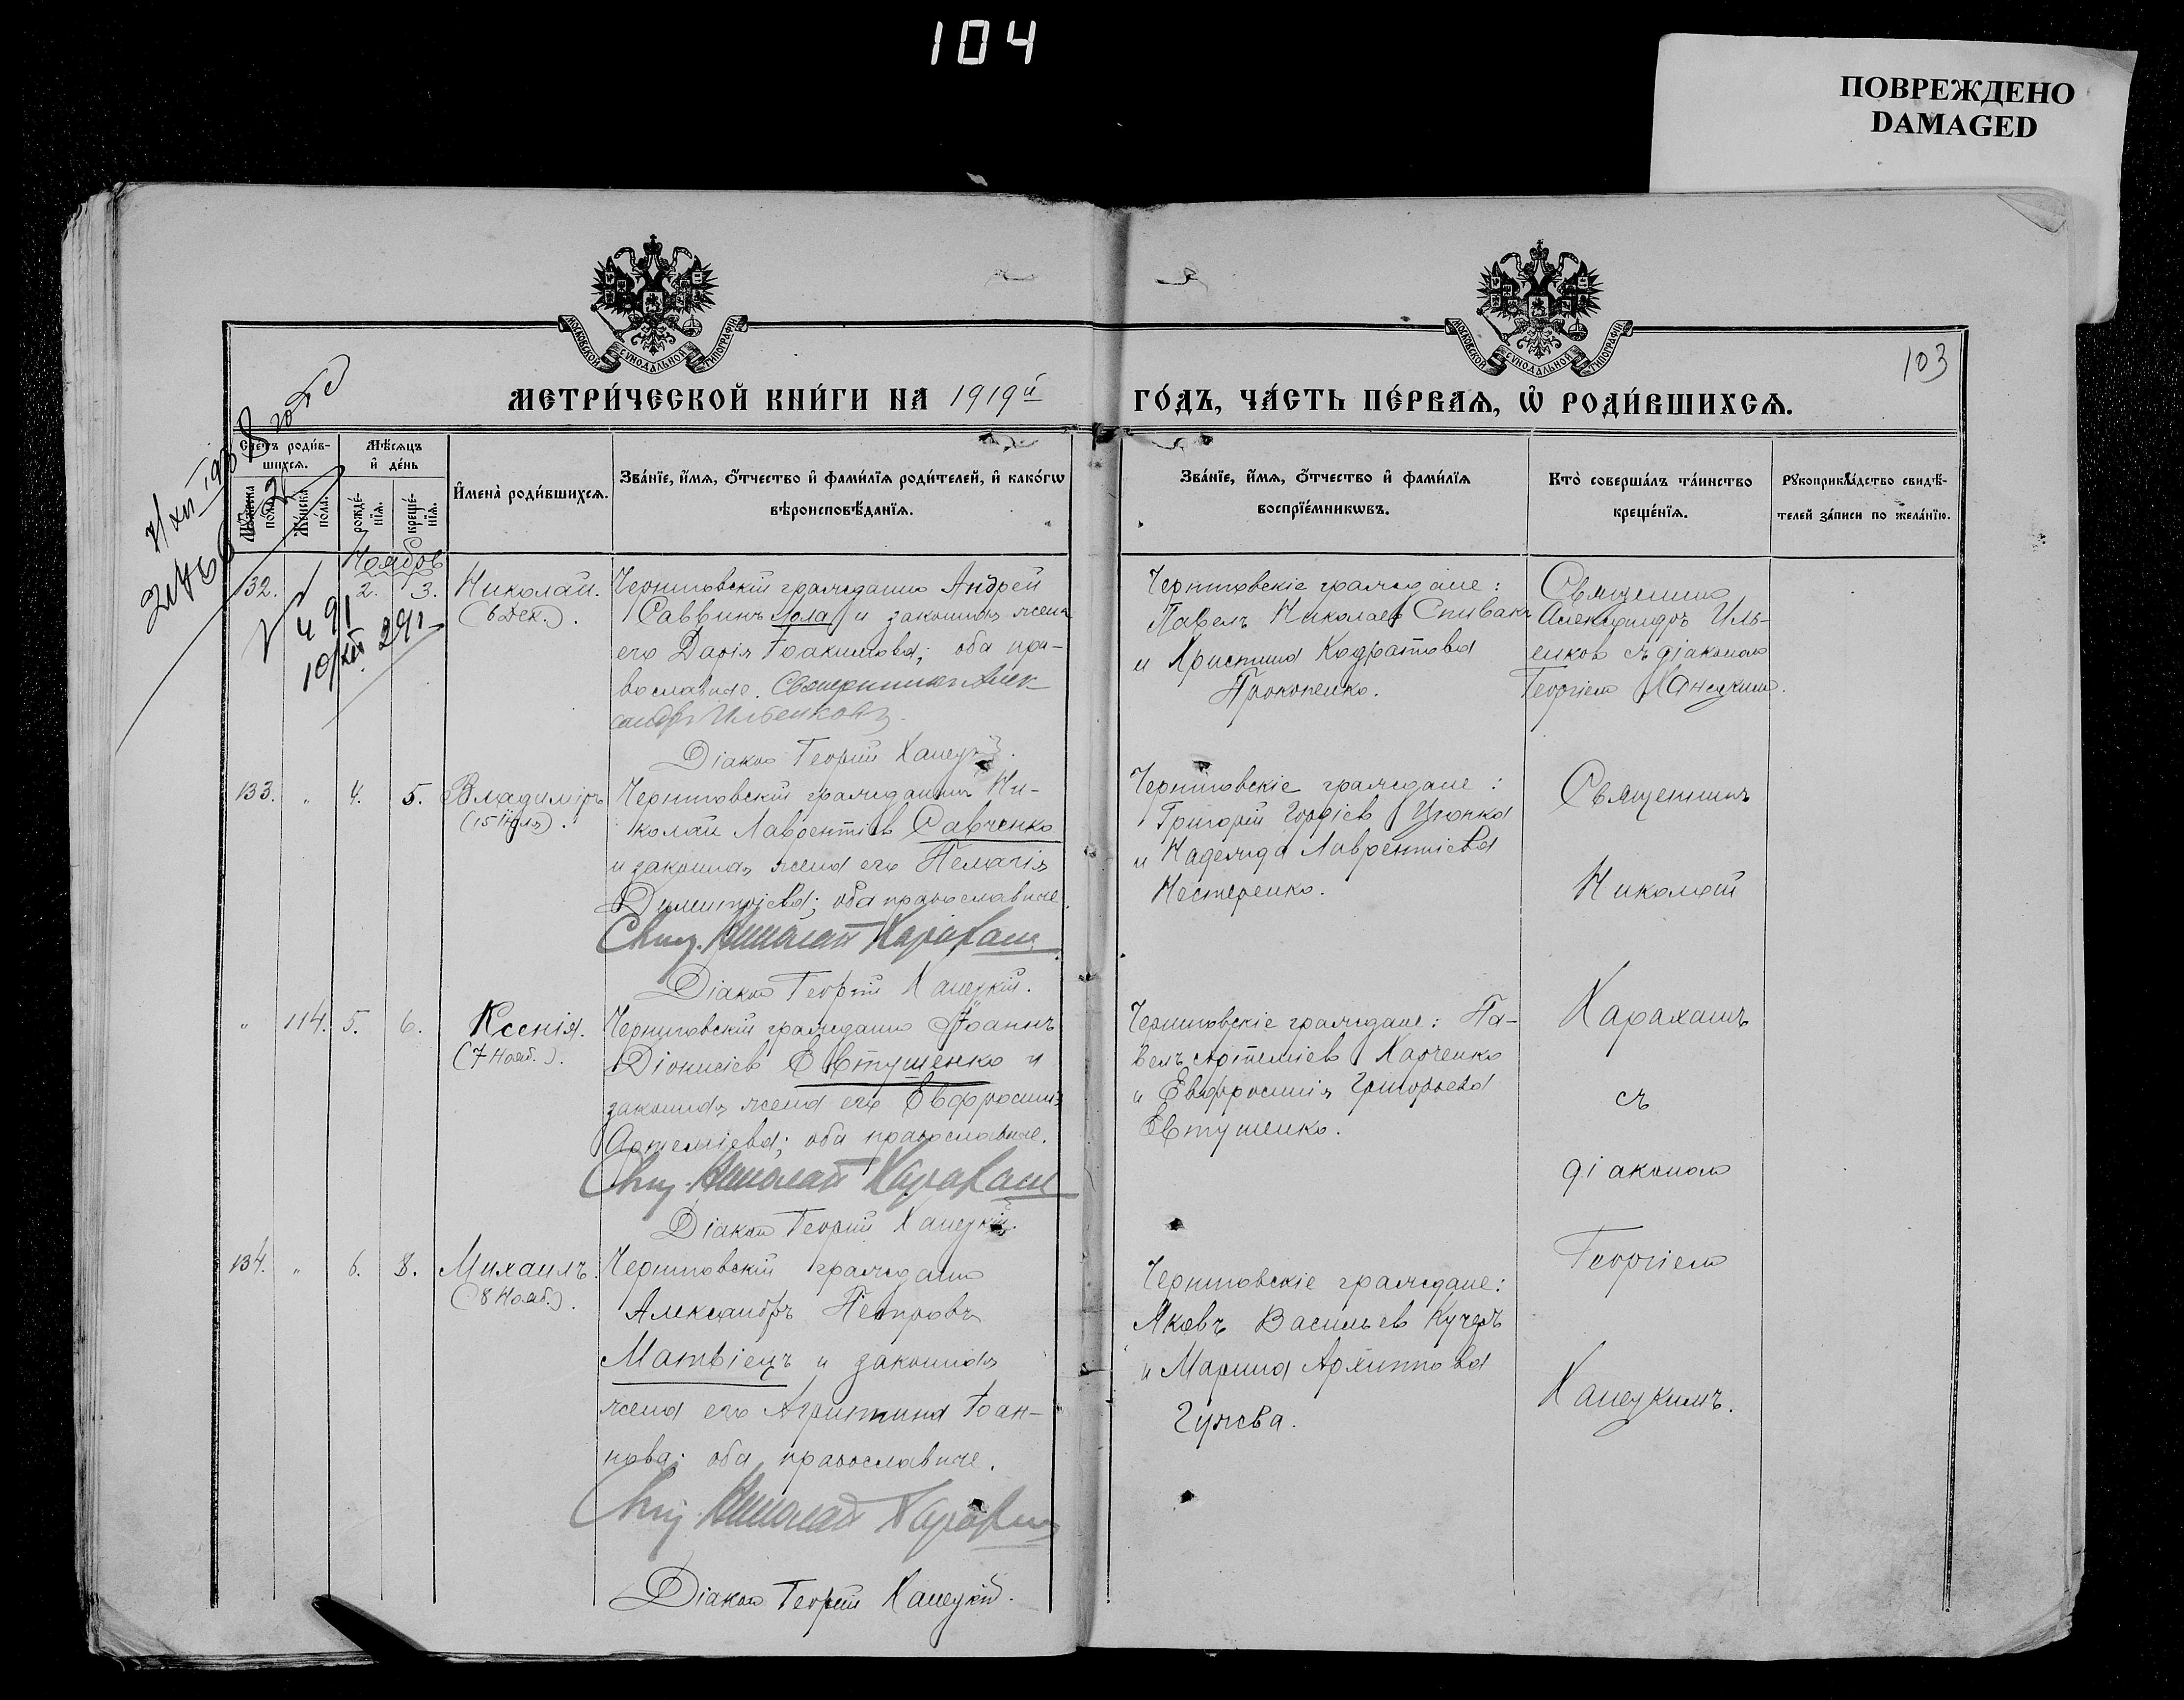 104
ПОВРЕЖДЕНО
DAMAGED
МОСКОВСКОЙ СУНОДАЛЬНОЙ ТИПОГРАФІИ
МОСКОВСКОЙ СУНОДАЛЬНОЙ ТИПОГРАФІИ
103
МЕТРИ́ЧЕСКОЙ КНИ́ГИ НА 1919й
ГО́ДЪ, ЧА́СТЬ ПЕ́РВАѦ, Ѡ҆ РОДИ́ВШИХСѦ.
Сче́тъ роди́вшихсѧ.
Мѣ́сѧцъ и҆ де́нь
Мꙋ́жеска по́ла.
Же́нска по́ла.
рожде́нїѧ.
креще́нїѧ.
И҆мена̀ роди́вшихсѧ.
Зва́нїе, и҆́мѧ, ѻ҆́тчество и҆ фами́лїѧ роди́телей, и҆ како́гѡ
вѣроисповѣ́данїѧ.
Зва́нїе, и҆́мѧ, ѻ҆́тчество и҆ фами́лїѧ
воспрїе́мникѡвъ.
Кто̀ соверша́лъ та́инство
креще́нїѧ.
Рꙋкоприкла́дство свидѣ́-
телей за́писи по жела́нїю.
Ноябрь
132. 2. 3. Николай.
(6 Дек.).
491
10/XII 291
Черниговскій гражданинъ Андрей
Саввинъ Лола и законная жена
его Дарія Іоакимова; оба пра-
вославные. Священникъ Алек-
сандръ Ильенковъ.
Діаконъ Георгій Ханецкій.
Черниговскіе граждане:
Павелъ Николаевъ Спивакъ
и Христина Кодратова
Прокопенко.
Священникъ
Александръ Иль-
енковъ съ діакономъ
Георгіемъ Ханецкимъ.
133. " 4. 5. Владиміръ
(15 Іюля).
Черниговскій гражданинъ Ни-
колай Лаврентіевъ Савченко
и законная жена его Пелагія
Димитріева; оба православные.
Свящ. Николай Карахан
Діаконъ Георгій Ханецкій.
Черниговскіе граждане:
Григорій Гордіевъ Цюпка
и Надежда Лаврентіева
Нестеренко.
Священникъ
Николай
" 114. 5. 6. Ксенія.
(7 Нояб.).
Черниговскій гражданинъ Іоаннъ
Діонисіевъ Евтушенко и
законная жена его Евфросинія
Артеміева; оба православные.
Свящ. Николай Карахан
Діаконъ Георгій Ханецкій.
Черниговскіе граждане: Па-
велъ Артеміевъ Харченко
и Евфросинія Григорьева
Евтушенко.
Караханъ
съ
діакономъ
134. " 6. 8. Михаилъ.
(8 Нояб.).
Черниговскій гражданинъ
Александръ Петровъ
Матвіецъ и законная
жена его Агриппина Іоан-
нова; оба православные.
Свящ. Николай Карахан
Діаконъ Георгій Ханецкій.
Черниговскіе граждане:
Яковъ Васильевъ Кучеръ
и Марина Архипова
Гужва.
Георгіемъ
Ханецкимъ.